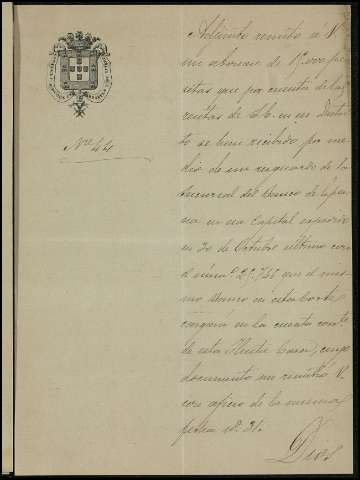 Nro 44
Adjunto remito á V.
un abonaré de 15.000 pe
setas que por cuenta de las
rentas de S.E. en ese Distri
to se han recibido por me
dio de un resguardo de la
Sucursal del Banco de Espa
ña en esa Capital expedido
en 30 de Octubre último con
el núm.º 25.746 que el mis
mo Banco en esta Corte
cargará en la cuenta corrte
de esta Ilustre Casa, cuyo
documento me remitió V.
con oficio de la misma
fecha nº 31.
Dios